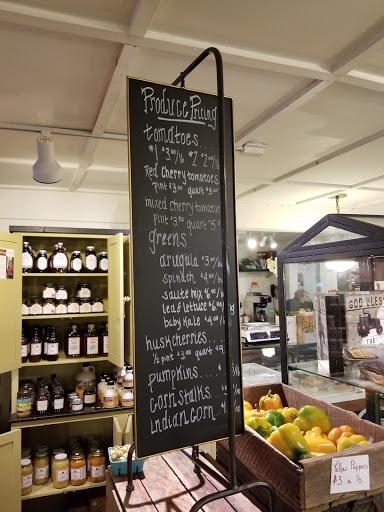 Produce Pricing
tomatoes
#1 $3.00/lb #2 $2.00/lb
Red cherry tomatoes
pint $3.00 quart $5.
mixed cherry tomatoe
pint $3.50 quart $5
greens
arugula $3.00/lb
spinach $4.00/lb
saute mix $6.00/lb
leaf lettuce $6.00/lb
baby kale $4.00/lb
huskcherries....
1/2 pint $3.00 quart $9
pumpkins....
corn stalks.
indian corn.
GOD BLESS
THE
Yellow Peppers
$3 a lb